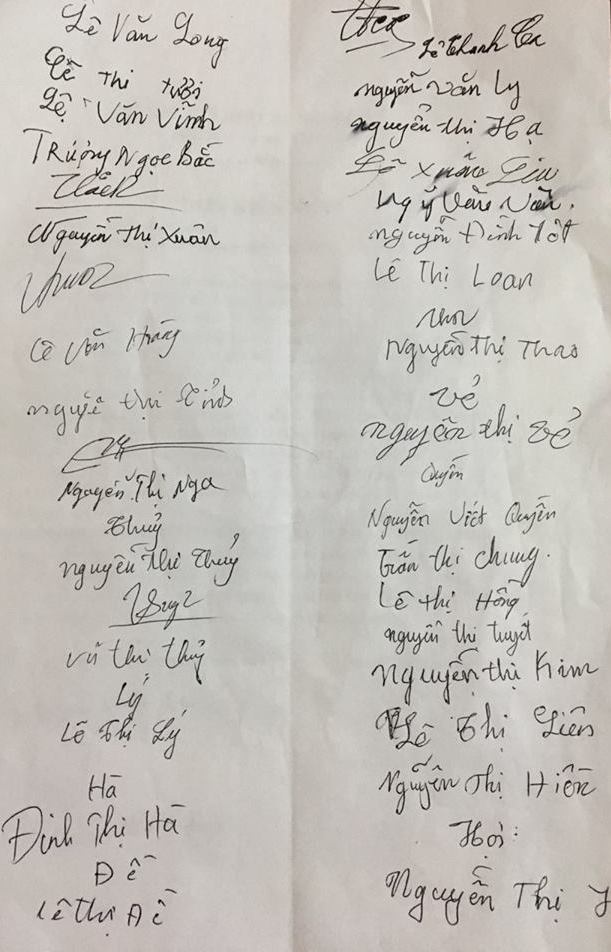 Lê Văn Long
Lê Thị tười
Lê Văn Vĩnh
Trương Ngọc Bắc
Nguyễn Thị Xuân
Lê Văn Hoàng
nguyễn thị
Nguyễn Thị Nga
Thuỷ
nguyễn thị Thuỷ
vũ thị thuỷ
Lý
Lê Thị Lý
Hà
Đinh Thị Hà
Đề
Lê thị Đề
Lê Thanh
nguyễn văn Ly
nguyễn thị Hạ
Lê Xuân
Văn
nguyễn Đình Tốt
Lê Thị Loan
Nguyễn Thị Thao
vẻ
nguyễn thị vẻ
Quyền
Nguyễn Viết Quyền
Trần thị chung.
Lê thị Hồng
nguyễn thị tuyết
Nguyễn thị Kim
Lê Thị Liên
Nguyễn Thị Hiền
Hợi:
Nguyễn Thị